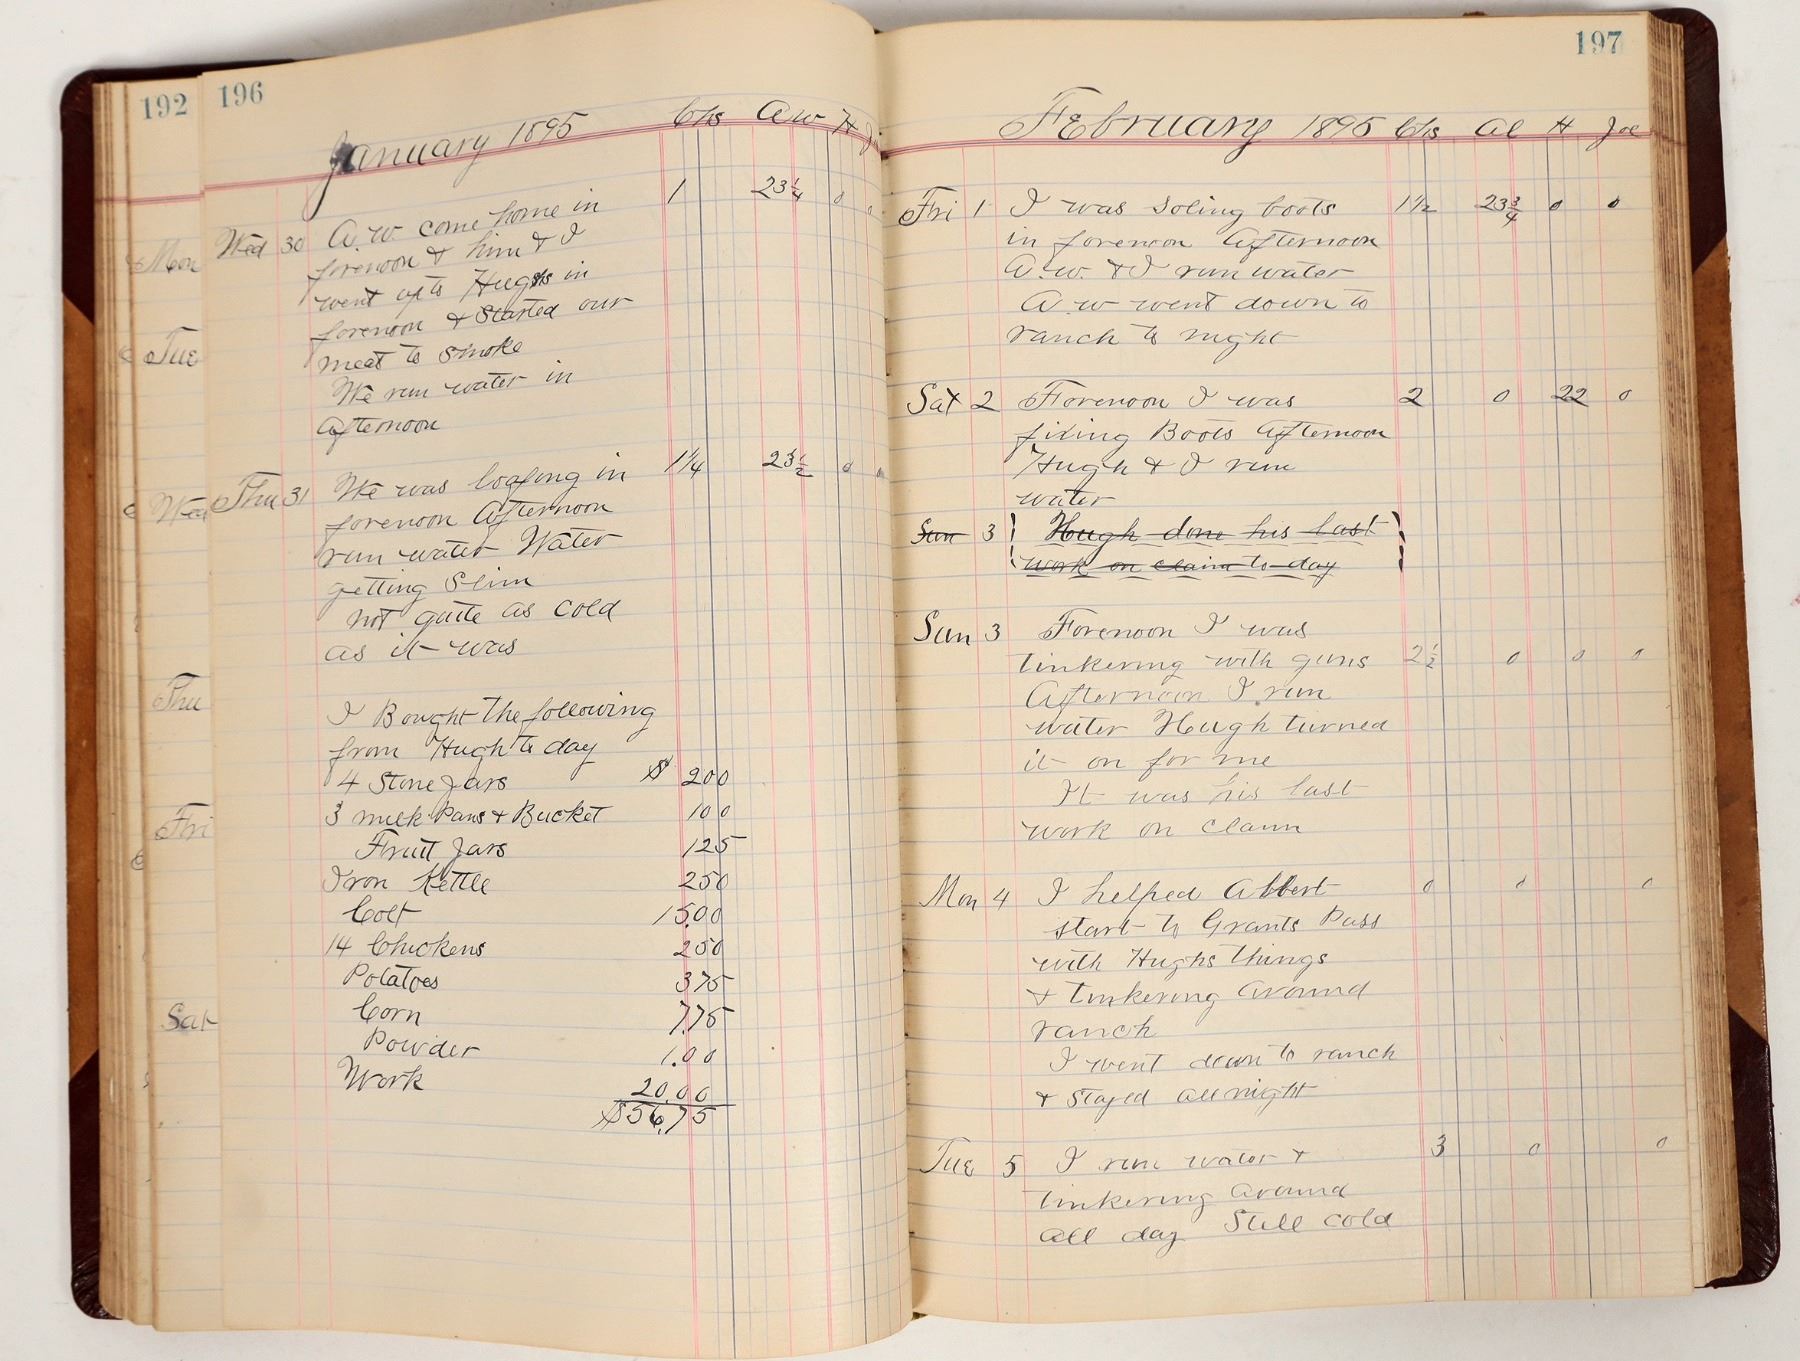 192
Mon
Tue
Wed
Thu
Fri
Sat
196
January 1895 Chs A W H
1 23 1/4 0 0
Wed 30 A. W. come home in
forenoon & him & I
went up to Hughs in
forenoon & Started our
meat to smoke
We run water in
Afternoon
Thu 31 We was loafing in 1 1/4 23 1/2 0 0
forenoon Afternoon
run water Water
getting Slim
not quite as cold
as it was
I Bought the following
from Hugh to day
4 Stone Jars $ 200
3 milk Pans & Bucket 100
Fruit Jars 125
Iron Kettle 250
Colt 15.00
14 Chickens 250
Potatoes 375
Corn 7.75
Powder 1.00
Work 20.00
$56.75
197
February 1895 Chs Al H Joe
Fri 1 I was Soling boots 1 1/2 23 3/4 0 0
in forenoon Afternoon
A. W. & I run water
A. W went down to
ranch to night
Sat 2 Forenoon I was 2 0 22 0
fixing Boots Afternoon
Hugh & I run
water
Sun 3 Hugh done his last
work on claim to-day
Sun 3 Forenoon I was
tinkering with guns 2 1/2 0 0 0
Afternoon I run
water Hugh turned
it on for me
It was his last
work on claim
Mon 4 I helped Albert 0 0 0
start to Grants Pass
with Hughs things
& tinkering Around
ranch
I went down to ranch
& Stayed all night
Tue 5 I run water & 3 0 0
tinkering Around
all day Still cold